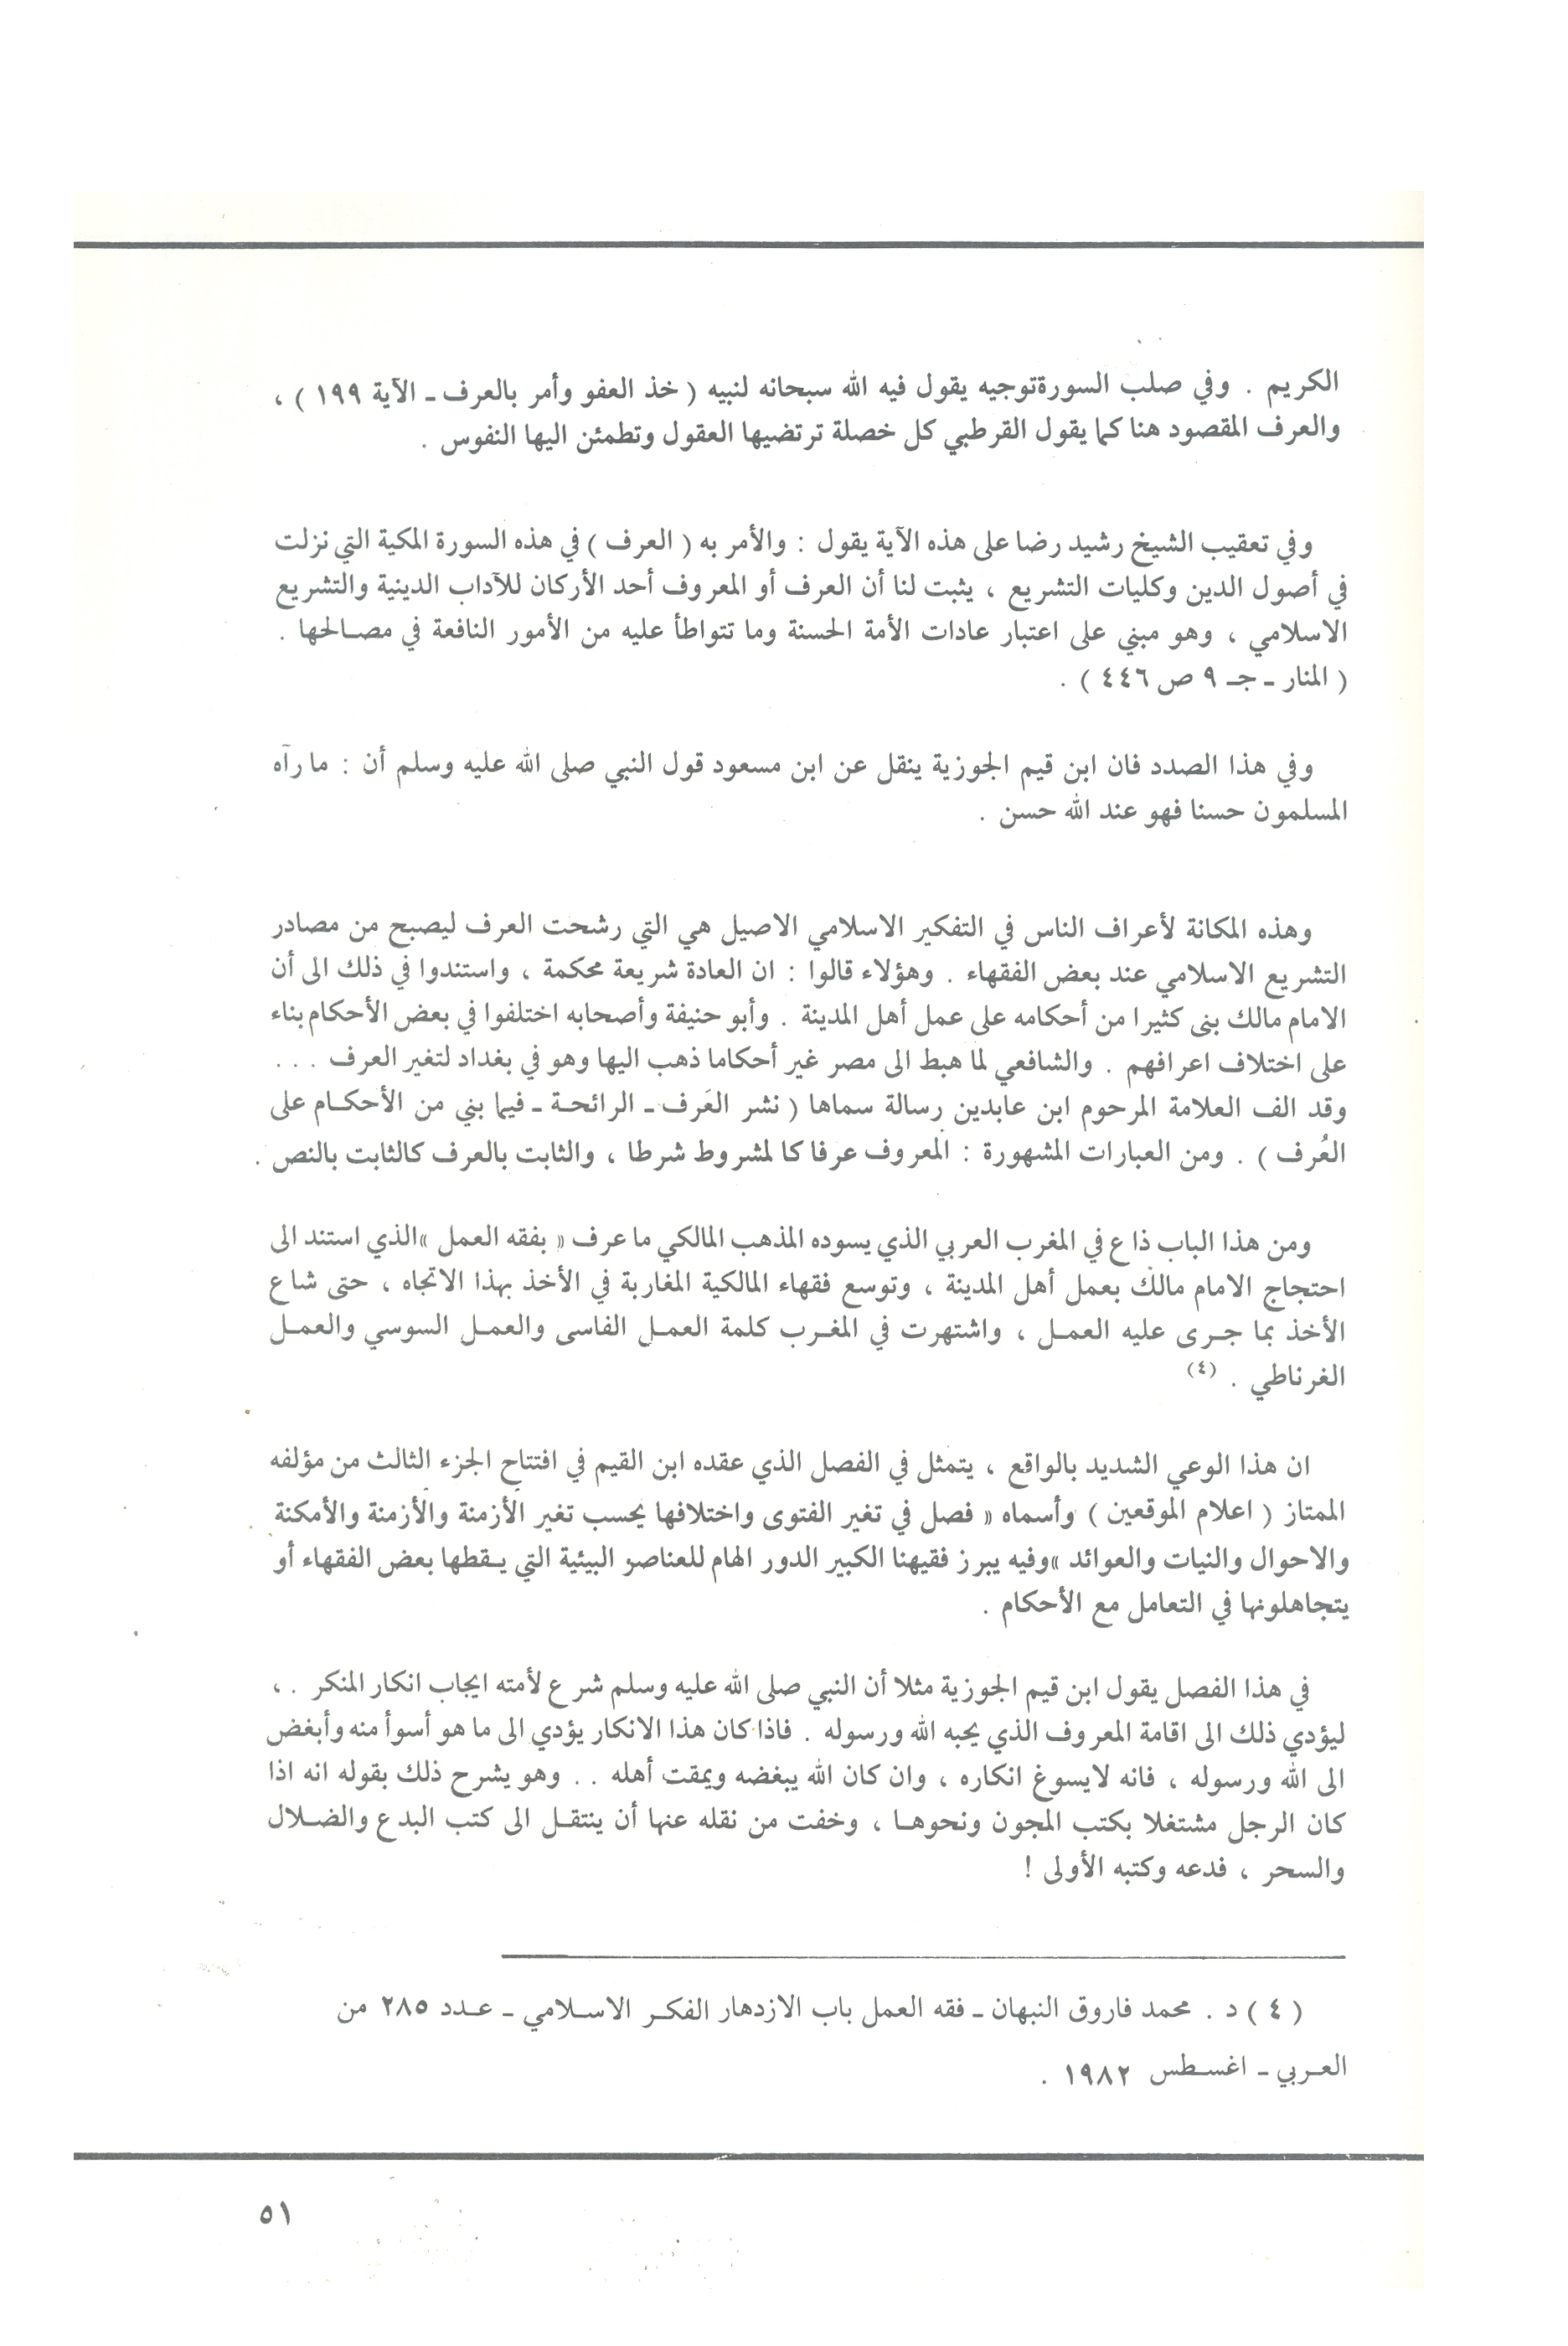 الكريم . وفي صلب السورةتوجيه يقول فيه الله سبحانه لنبيه ( خذ العفو وأمر بالعرف ـ الآية ١٩٩ ) ،
والعرف المقصود هنا كما يقول القرطبي كل خصلة ترتضيها العقول وتطمئن اليها النفوس .
وفي تعقيب الشيخ رشيد رضا على هذه الآية يقول : والأمر به ( العرف ) في هذه السورة المكية التي نزلت
في أصول الدين وكليات التشريع ، يثبت لنا أن العرف أو المعروف أحد الأركان للآداب الدينية والتشريع
الاسلامي ، وهو مبني على اعتبار عادات الأمة الحسنة وما تتواطأ عليه من الأمور النافعة في مصالحها .
( المنار ـ جـ ٩ ص ٤٤٦ ) .
وفي هذا الصدد فان ابن قيم الجوزية ينقل عن ابن مسعود قول النبي صلى الله عليه وسلم أن : ما رآه
المسلمون حسنا فهو عند الله حسن .
وهذه المكانة لأعراف الناس في التفكير الاسلامي الاصيل هي التي رشحت العرف ليصبح من مصادر
التشريع الاسلامي عند بعض الفقهاء . وهؤلاء قالوا : ان العادة شريعة محكمة ، واستندوا في ذلك الى أن
الامام مالك بنى كثيرا من أحكامه على عمل أهل المدينة . وأبو حنيفة وأصحابه اختلفوا في بعض الأحكام بناء
على اختلاف اعرافهم . والشافعي لما هبط الى مصر غير أحكاما ذهب اليها وهو في بغداد لتغير العرف . . .
وقد الف العلامة المرحوم ابن عابدين رسالة سماها ( نشر العَرف ـ الرائحة ـ فيما بني من الأحكام على
العُرف ) . ومن العبارات المشهورة : المعروف عرفا كالمشروط شرطا ، والثابت بالعرف كالثابت بالنص .
ومن هذا الباب ذاع في المغرب العربي الذي يسوده المذهب المالكي ما عرف « بفقه العمل »الذي استند الى
احتجاج الامام مالك بعمل أهل المدينة ، وتوسع فقهاء المالكية المغاربة في الأخذ بهذا الاتجاه ، حتى شاع
الأخذ بما جرى عليه العمل ، واشتهرت في المغرب كلمة العمل الفاسى والعمل السوسي والعمل
الغرناطي . (٤)
ان هذا الوعي الشديد بالواقع ، يتمثل في الفصل الذي عقده ابن القيم في افتتاح الجزء الثالث من مؤلفه
الممتاز ( اعلام الموقعين ) وأسماه « فصل في تغير الفتوى واختلافها بحسب تغير الأزمنة والأزمنة والأمكنة
والاحوال والنيات والعوائد »وفيه يبرز فقيهنا الكبير الدور الهام للعناصر البيئية التي يسقطها بعض الفقهاء أو
يتجاهلونها في التعامل مع الأحكام .
في هذا الفصل يقول ابن قيم الجوزية مثلا أن النبي صلى الله عليه وسلم شرع لأمته ايجاب انكار المنكر . ،
ليؤدي ذلك الى اقامة المعروف الذي يحبه الله ورسوله . فاذا كان هذا الانكار يؤدي الى ما هو أسوأ منه وأبغض
الى الله ورسوله ، فانه لايسوغ انكاره ، وان كان الله يبغضه ويمقت أهله . . وهو يشرح ذلك بقوله انه اذا
كان الرجل مشتغلا بكتب المجون ونحوها ، وخفت من نقله عنها أن ينتقل الى كتب البدع والضلال
والسحر ، فدعه وكتبه الأولى !
( ٤ ) د . محمد فاروق النبهان ـ فقه العمل باب الازدهار الفكر الاسلامي ـ عدد ٢٨٥ من
العربي ـ اغسطس ١٩٨٢ .
٥١